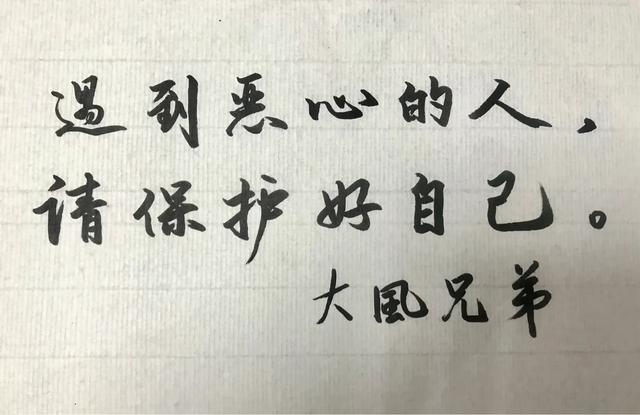 遇到恶心的人，
请保护好自己。
大風兄弟